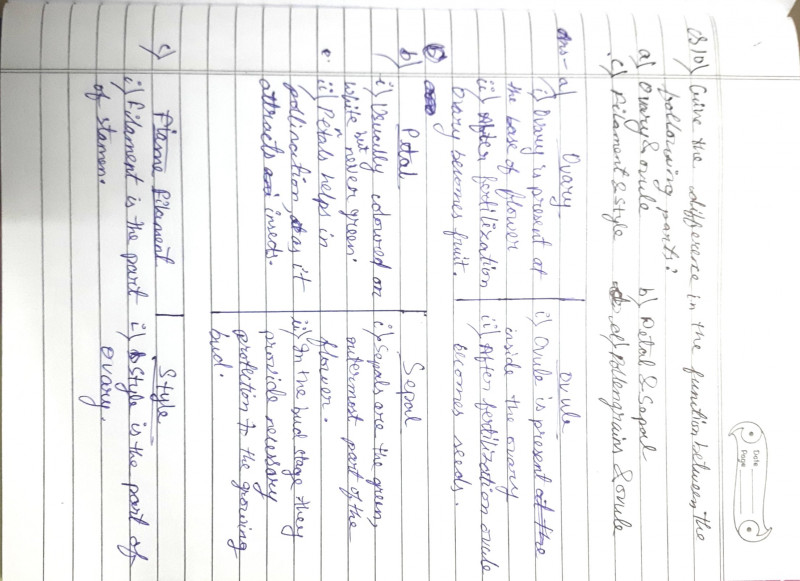 Date
Page
Q10) Guive the difference in the function between the
following parts:
a) Ovary & ovule b) Petal & Sepal
c) Filament & style d) Pollengrains & ovule
Ans- a) Ovary | ovule
i) Ovary is present at | i) Ovule is present at the
the base of flower | inside the ovary
ii) After fertilization | ii) After fertilization ovule
Ovary becomes fruit. | becomes seeds.
b) Petal | Sepal
i) Usually coloured or | i) Sepals are the green,
white but never green. | outermost part of the
ii) Petals helps in | flower.
pollination, as it | ii) In the bud stage they
attracts insects. | provide necessary
protection to the growing
bud.
c) Flame filament | Style
i) Filament is the part | i) Style is the part of
of stamen. | ovary.